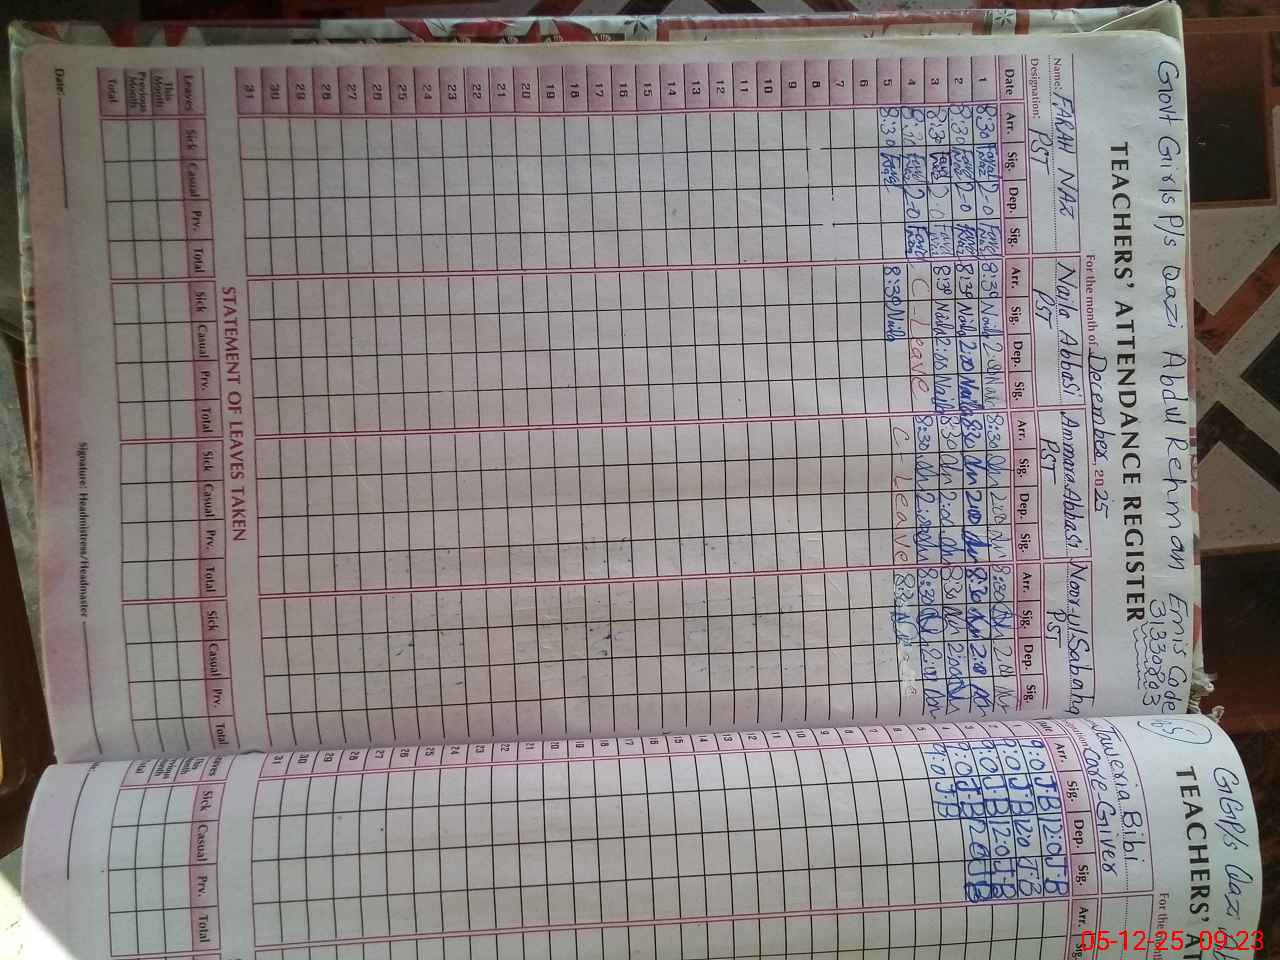 Govt Girls P/s Qazi Abdul Rehman Emis Code
31330803
TEACHERS' ATTENDANCE REGISTER
For the month of December, 2025
Name: FARAH NAZ Naila Abbasi Ammara Abbasi Noor-ul-Sabah
Designation: PST PST PST PST
Date Arr. Sig. Dep. Sig. Arr. Sig. Dep. Sig. Arr. Sig. Dep. Sig. Arr. Sig. Dep. Sig.
1 8:30 2-0 8:30 Naila 2:00 8:30 2:00 8:30 2:00
2 8:30 2-0 8:30 Naila 2:00 Naila 8:30 2:00 8:30 2:00
3 8:30 8:30 Naila 2:00 Naila 8:30 2:00 8:30 2:00
4 8:30 2-0 C-Leave 8:30 2:00 8:30 2:00
5 8:30 8:30 Naila C-Leave 8:30
6
7
8
9
10
11
12
13
14
15
16
17
18
19
20
21
22
23
24
25
26
27
28
29
30
31
STATEMENT OF LEAVES TAKEN
Leaves Sick Casual Prv. Total Sick Casual Prv. Total Sick Casual Prv. Total Sick Casual Prv. Total
This Month
Previous Month
Total
Date: Signature: Headmistress/Headmaster
GGP/s Qazi
TEACHERS' AT
For the month
Jaweria Bibi
Care Giver
Arr. Sig. Dep. Sig. Arr.
1 9:0 J.B 12:0 J.B
2 9:0 J.B 12:0 J.B
3 9:0 J.B 12:0 J.B
4 9:0 J.B 12:0 J.B
5 9:0 J.B
6
7
8
9
10
11
12
13
14
15
16
17
18
19
20
21
22
23
24
25
26
27
28
29
30
31
Sick Casual Prv. Total
05-12-25 09:23